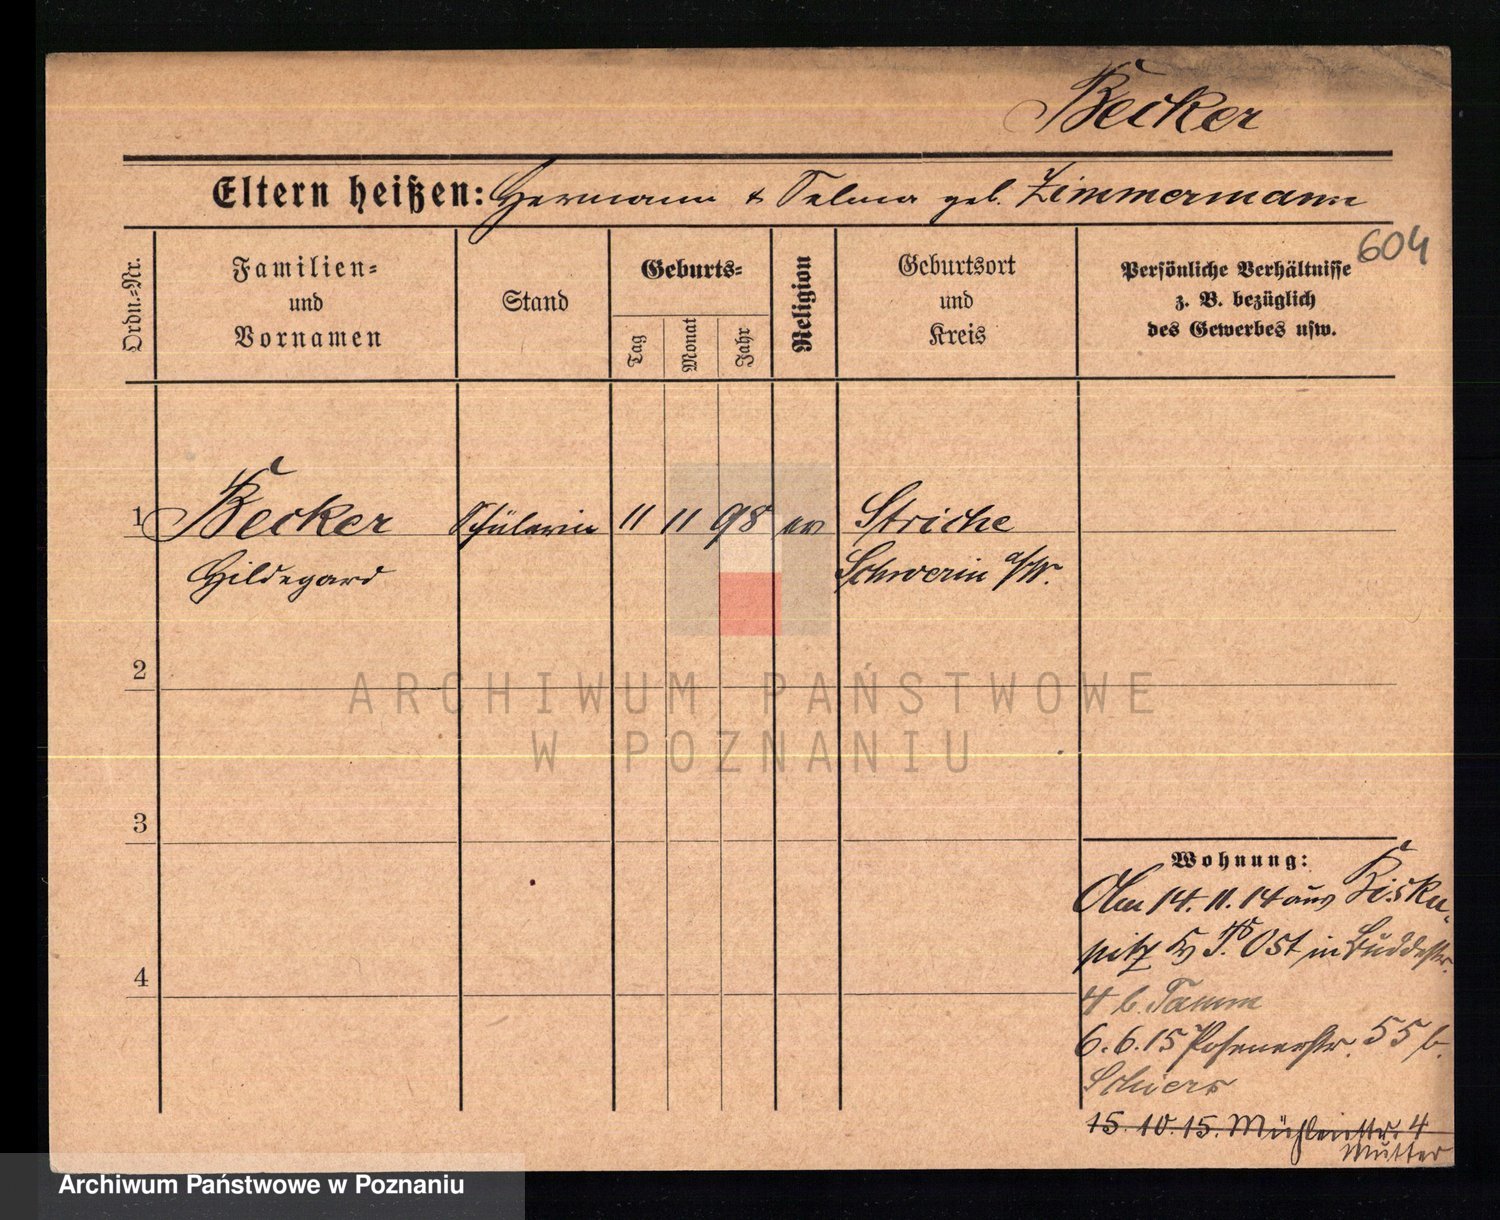 Becker
Eltern heißen: Hermann & Selma geb. Zimmermann
604
Ordn.-Nr.
Familien-
und
Vornamen
Stand
Geburts-
Tag
Monat
Jahr
Religion
Geburtsort
und
Kreis
Persönliche Verhältnisse
z. B. bezüglich
des Gewerbes usw.
1 Becker Schülerin 11 11 98 ev Striche
Hildegard Schwerin a/W.
2
3
4
Wohnung:
Am 14. 11. 14 aus Bisku-
pitz Ost in Buddestr.
4 b. Tamm
6. 6. 15 Posenerstr. 55 b.
Schiers
15. 10. 15. Mühlenstr. 4
Mutter
ARCHIWUM PAŃSTWOWE
W POZNANIU
Archiwum Państwowe w Poznaniu